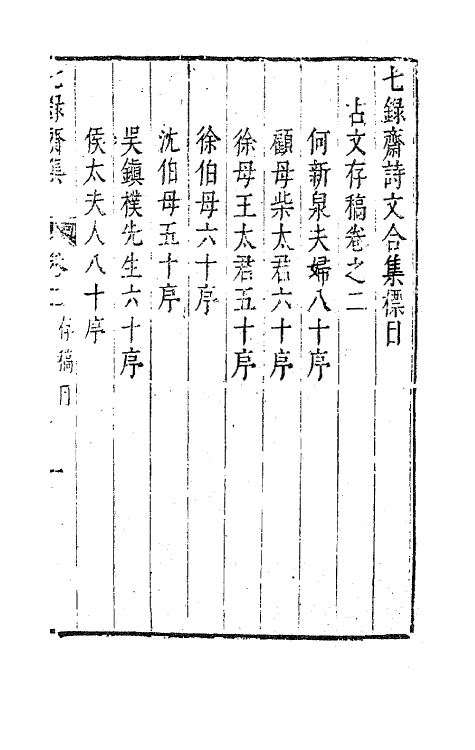 七錄齋詩文合集標目
古文存稿卷之二
何新泉夫婦八十序
顧母柴太君六十序
徐母王太君五十序
徐伯母六十序
沈伯母五十序
吳鎮樸先生六十序
侯太夫人八十序
七錄齋集 卷二 存稿目 一